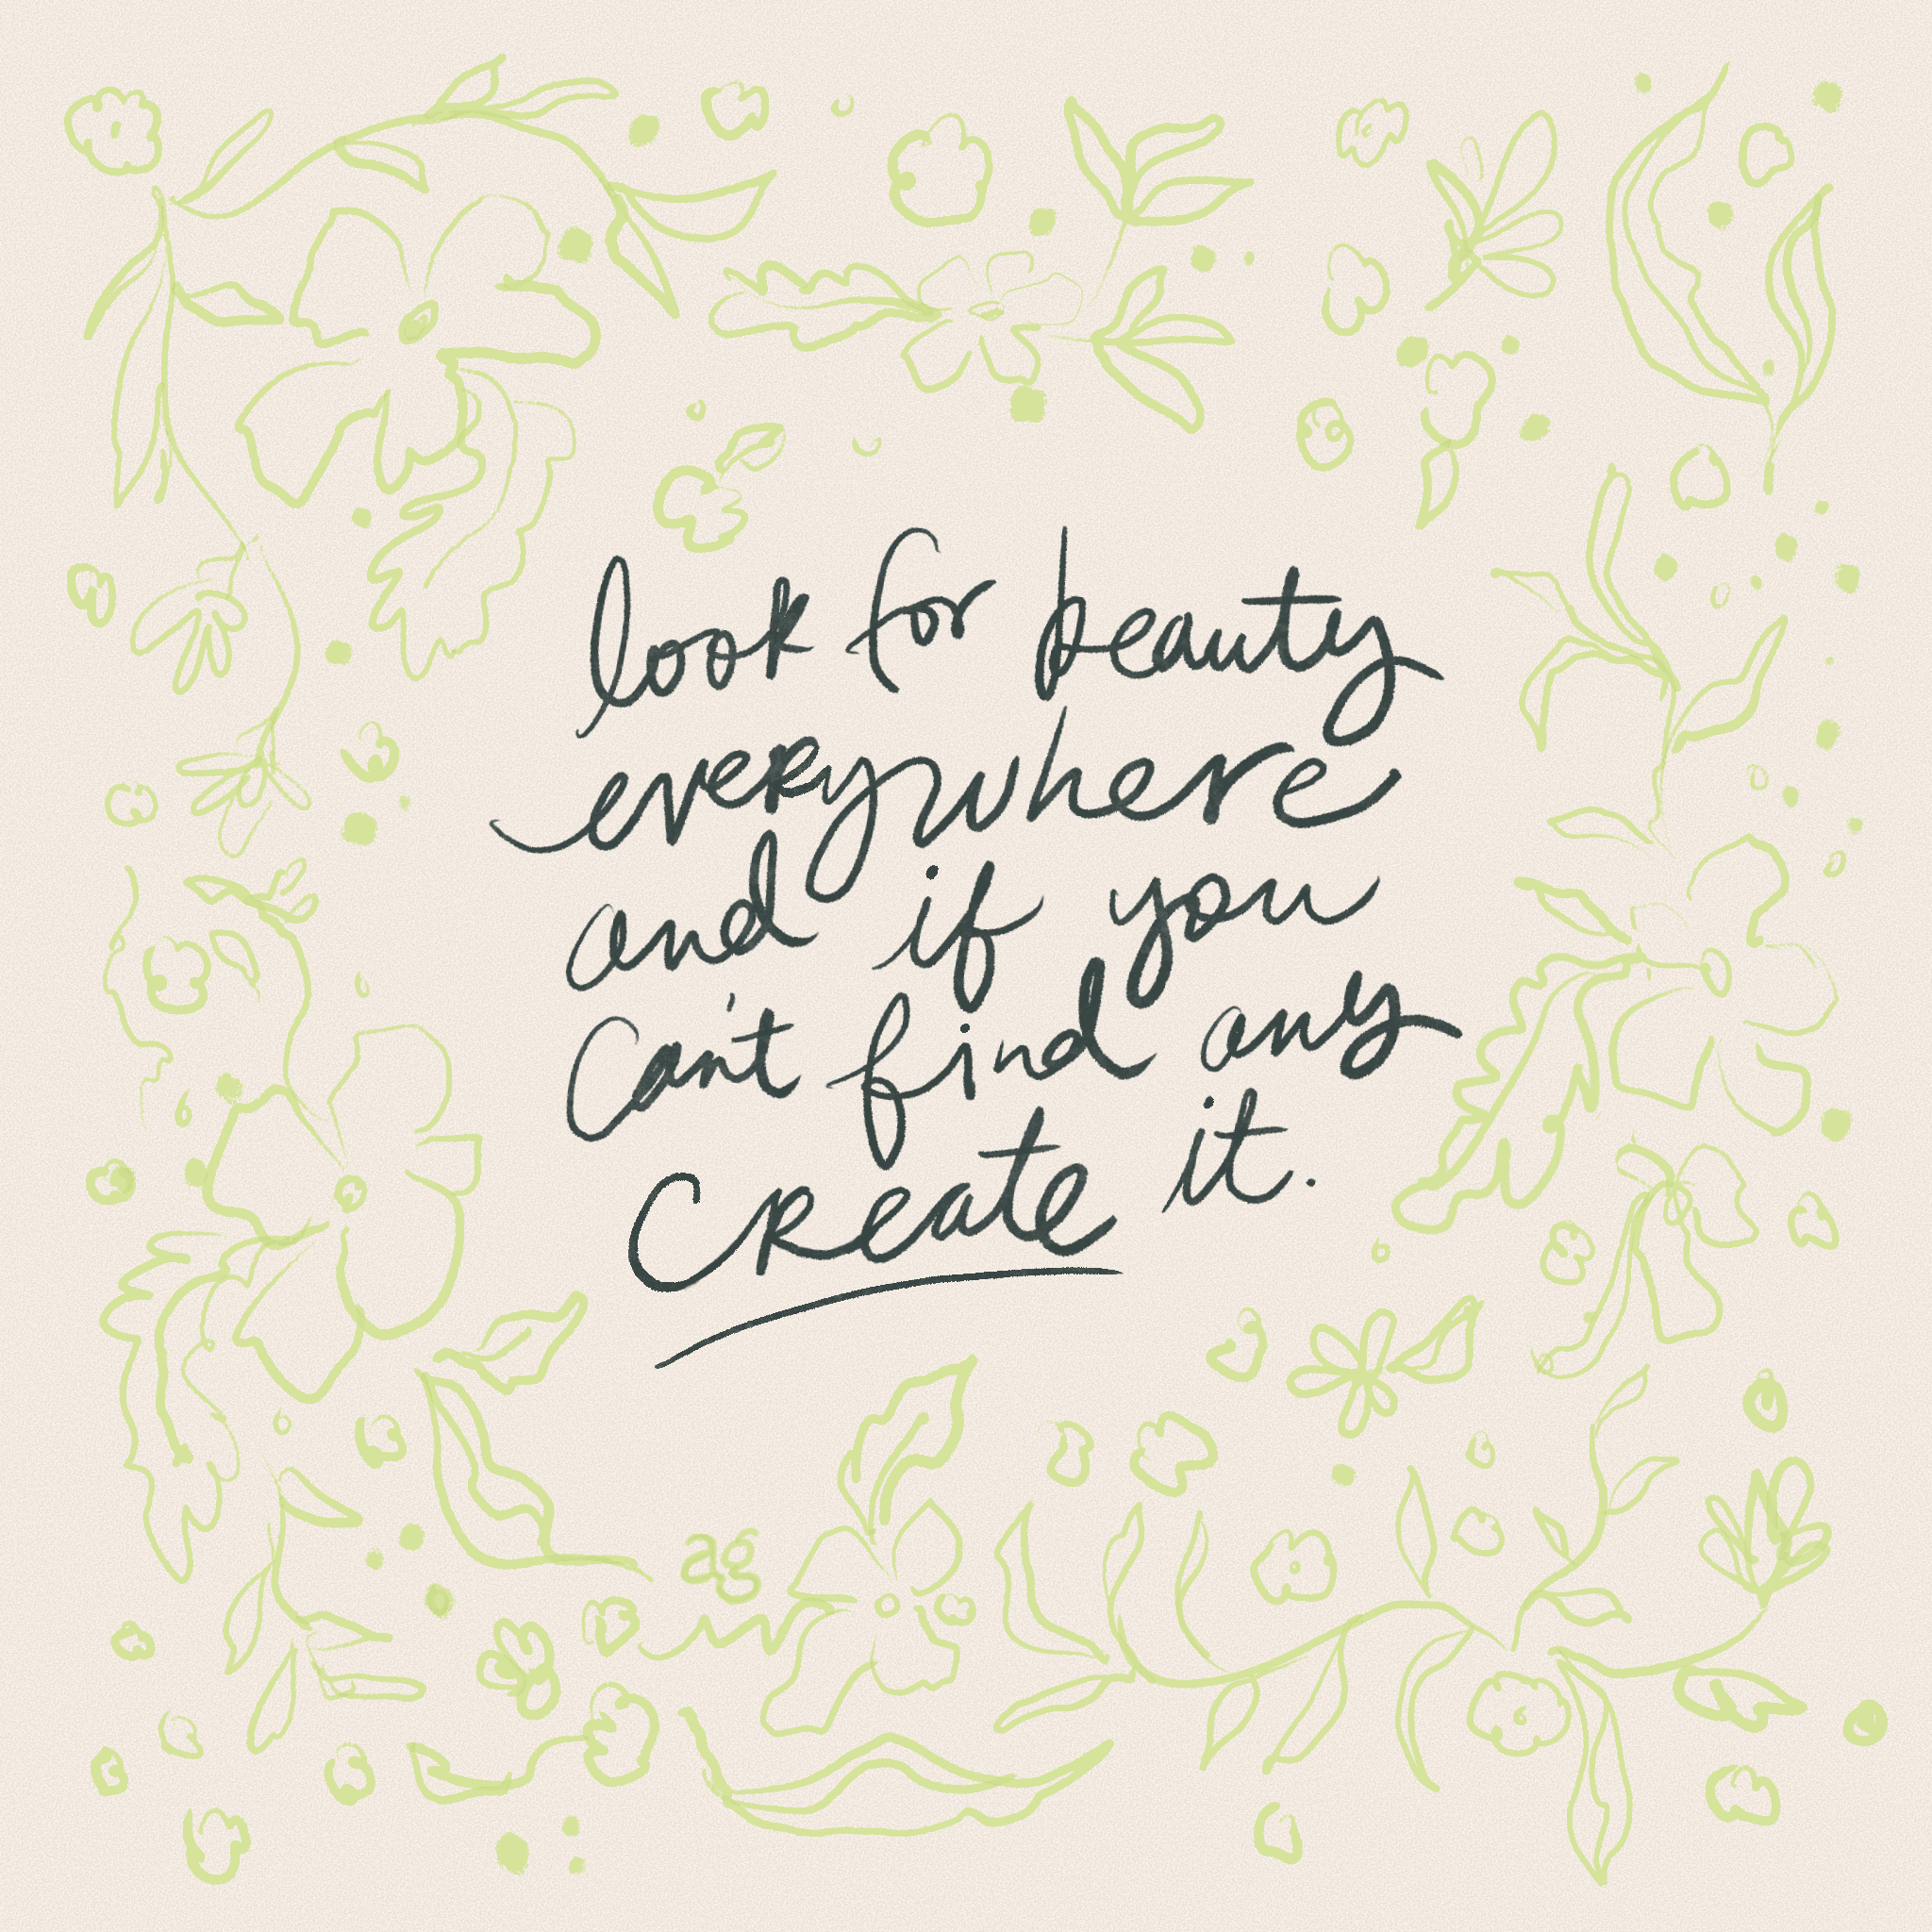 look for beauty
everywhere
and if you
can't find any
create it.
ag